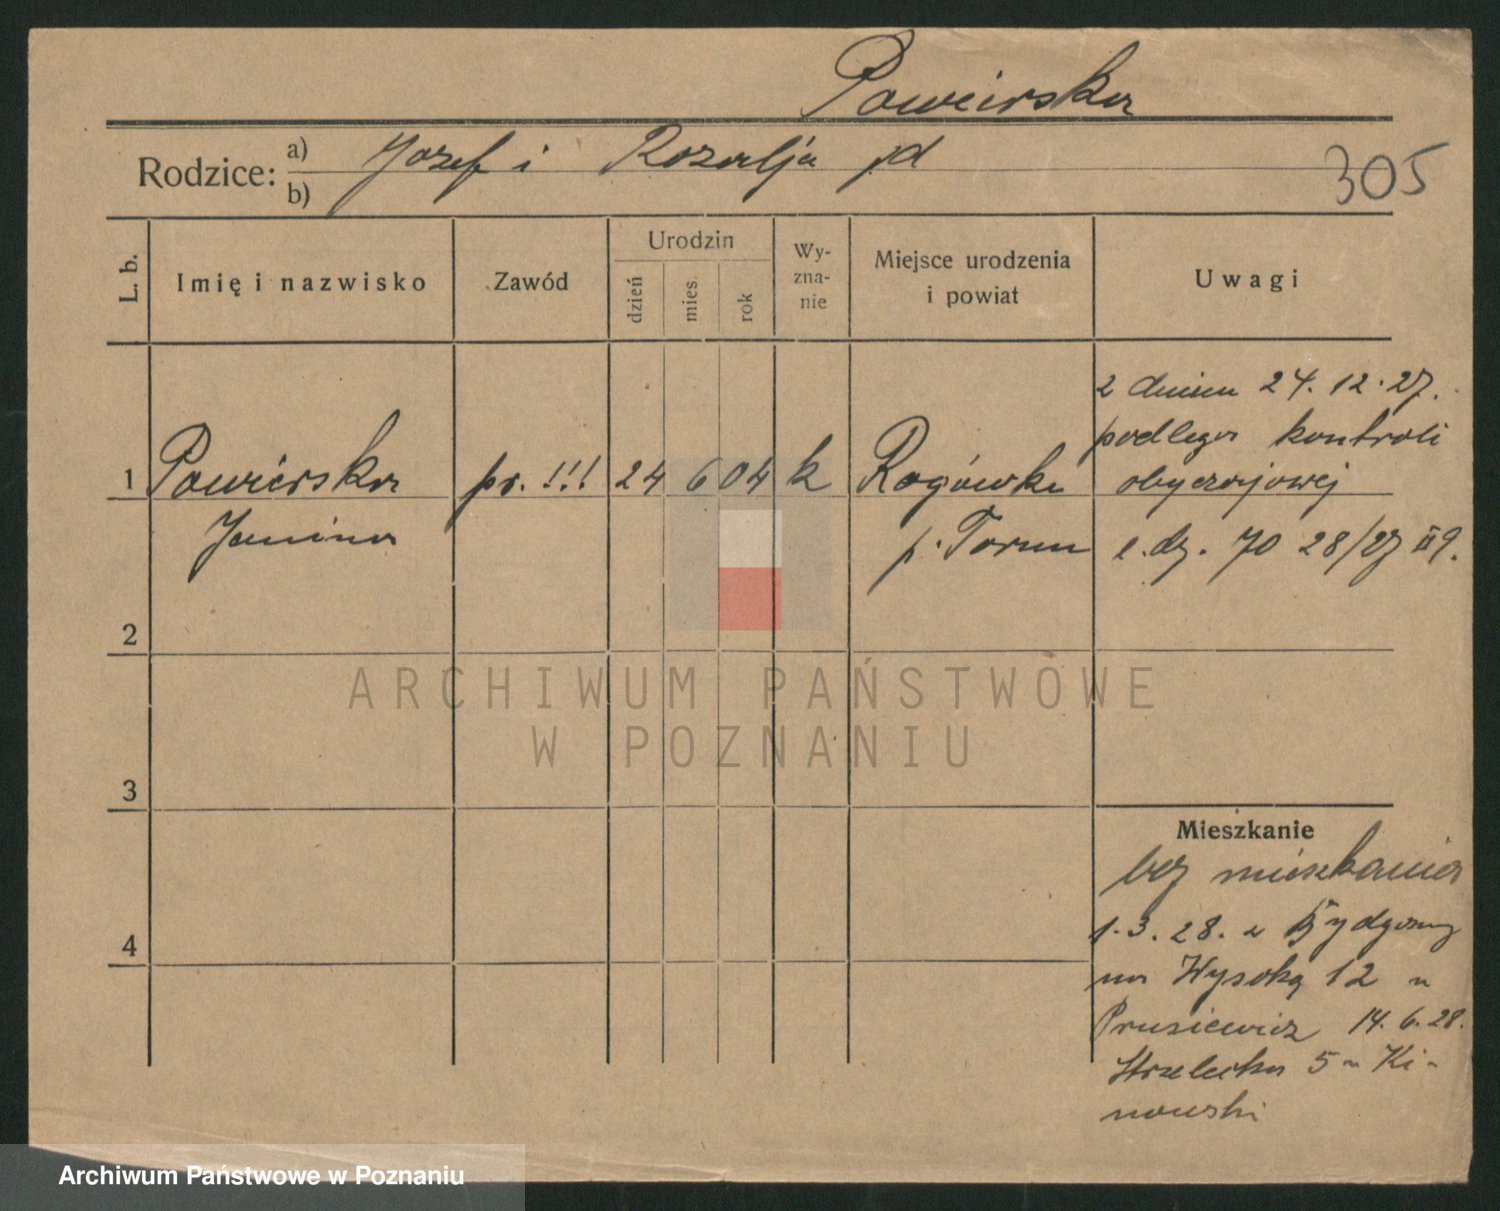 Powierska
Rodzice: a) Jozef i Rozalja jd
b)
305
L. b.
Imię i nazwisko
Zawód
Urodzin
dzień
mies.
rok
Wy-
zna-
nie
Miejsce urodzenia
i powiat
Uwagi
1 Powierska pr. !!! 24 6 04 k Rogówko
Janina p. Toruń
z dniem 24.12.27.
podlega kontroli
obyczajowej
l.dz. 70 28/27 III 9.
2
3
4
Mieszkanie
bez mieszkania
1.3.28. w Bydgoszcz
na Wysoką 12 u
Prusiewicz 14.6.28.
Strzelecka 5 u Ki-
nowski
ARCHIWUM PAŃSTWOWE
W POZNANIU
Archiwum Państwowe w Poznaniu